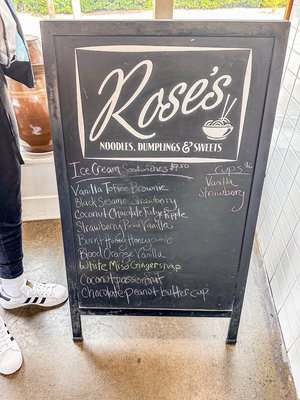 Rose's
NOODLES, DUMPLINGS & SWEETS
Ice Cream Sandwiches $9.50
Vanilla Toffee Brownie
Black Sesame Strawberry
Coconut Chocolate Fudge Ripple
Strawberry Vanilla
Burnt Honey Honeycomb
Blood Orange Vanilla
White Miso Gingersnap
Coconut passionfruit
Chocolate peanut butter cup
Cups
Vanilla
Strawberry